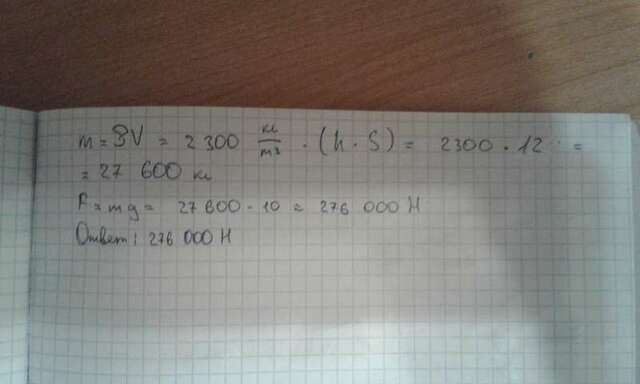 m = ρV = 2 300 кг/м3 · (h · S) = 2300 · 12 =
= 27 600 кг
F = mg = 27 600 · 10 = 276 000 Н
Ответ: 276 000 Н